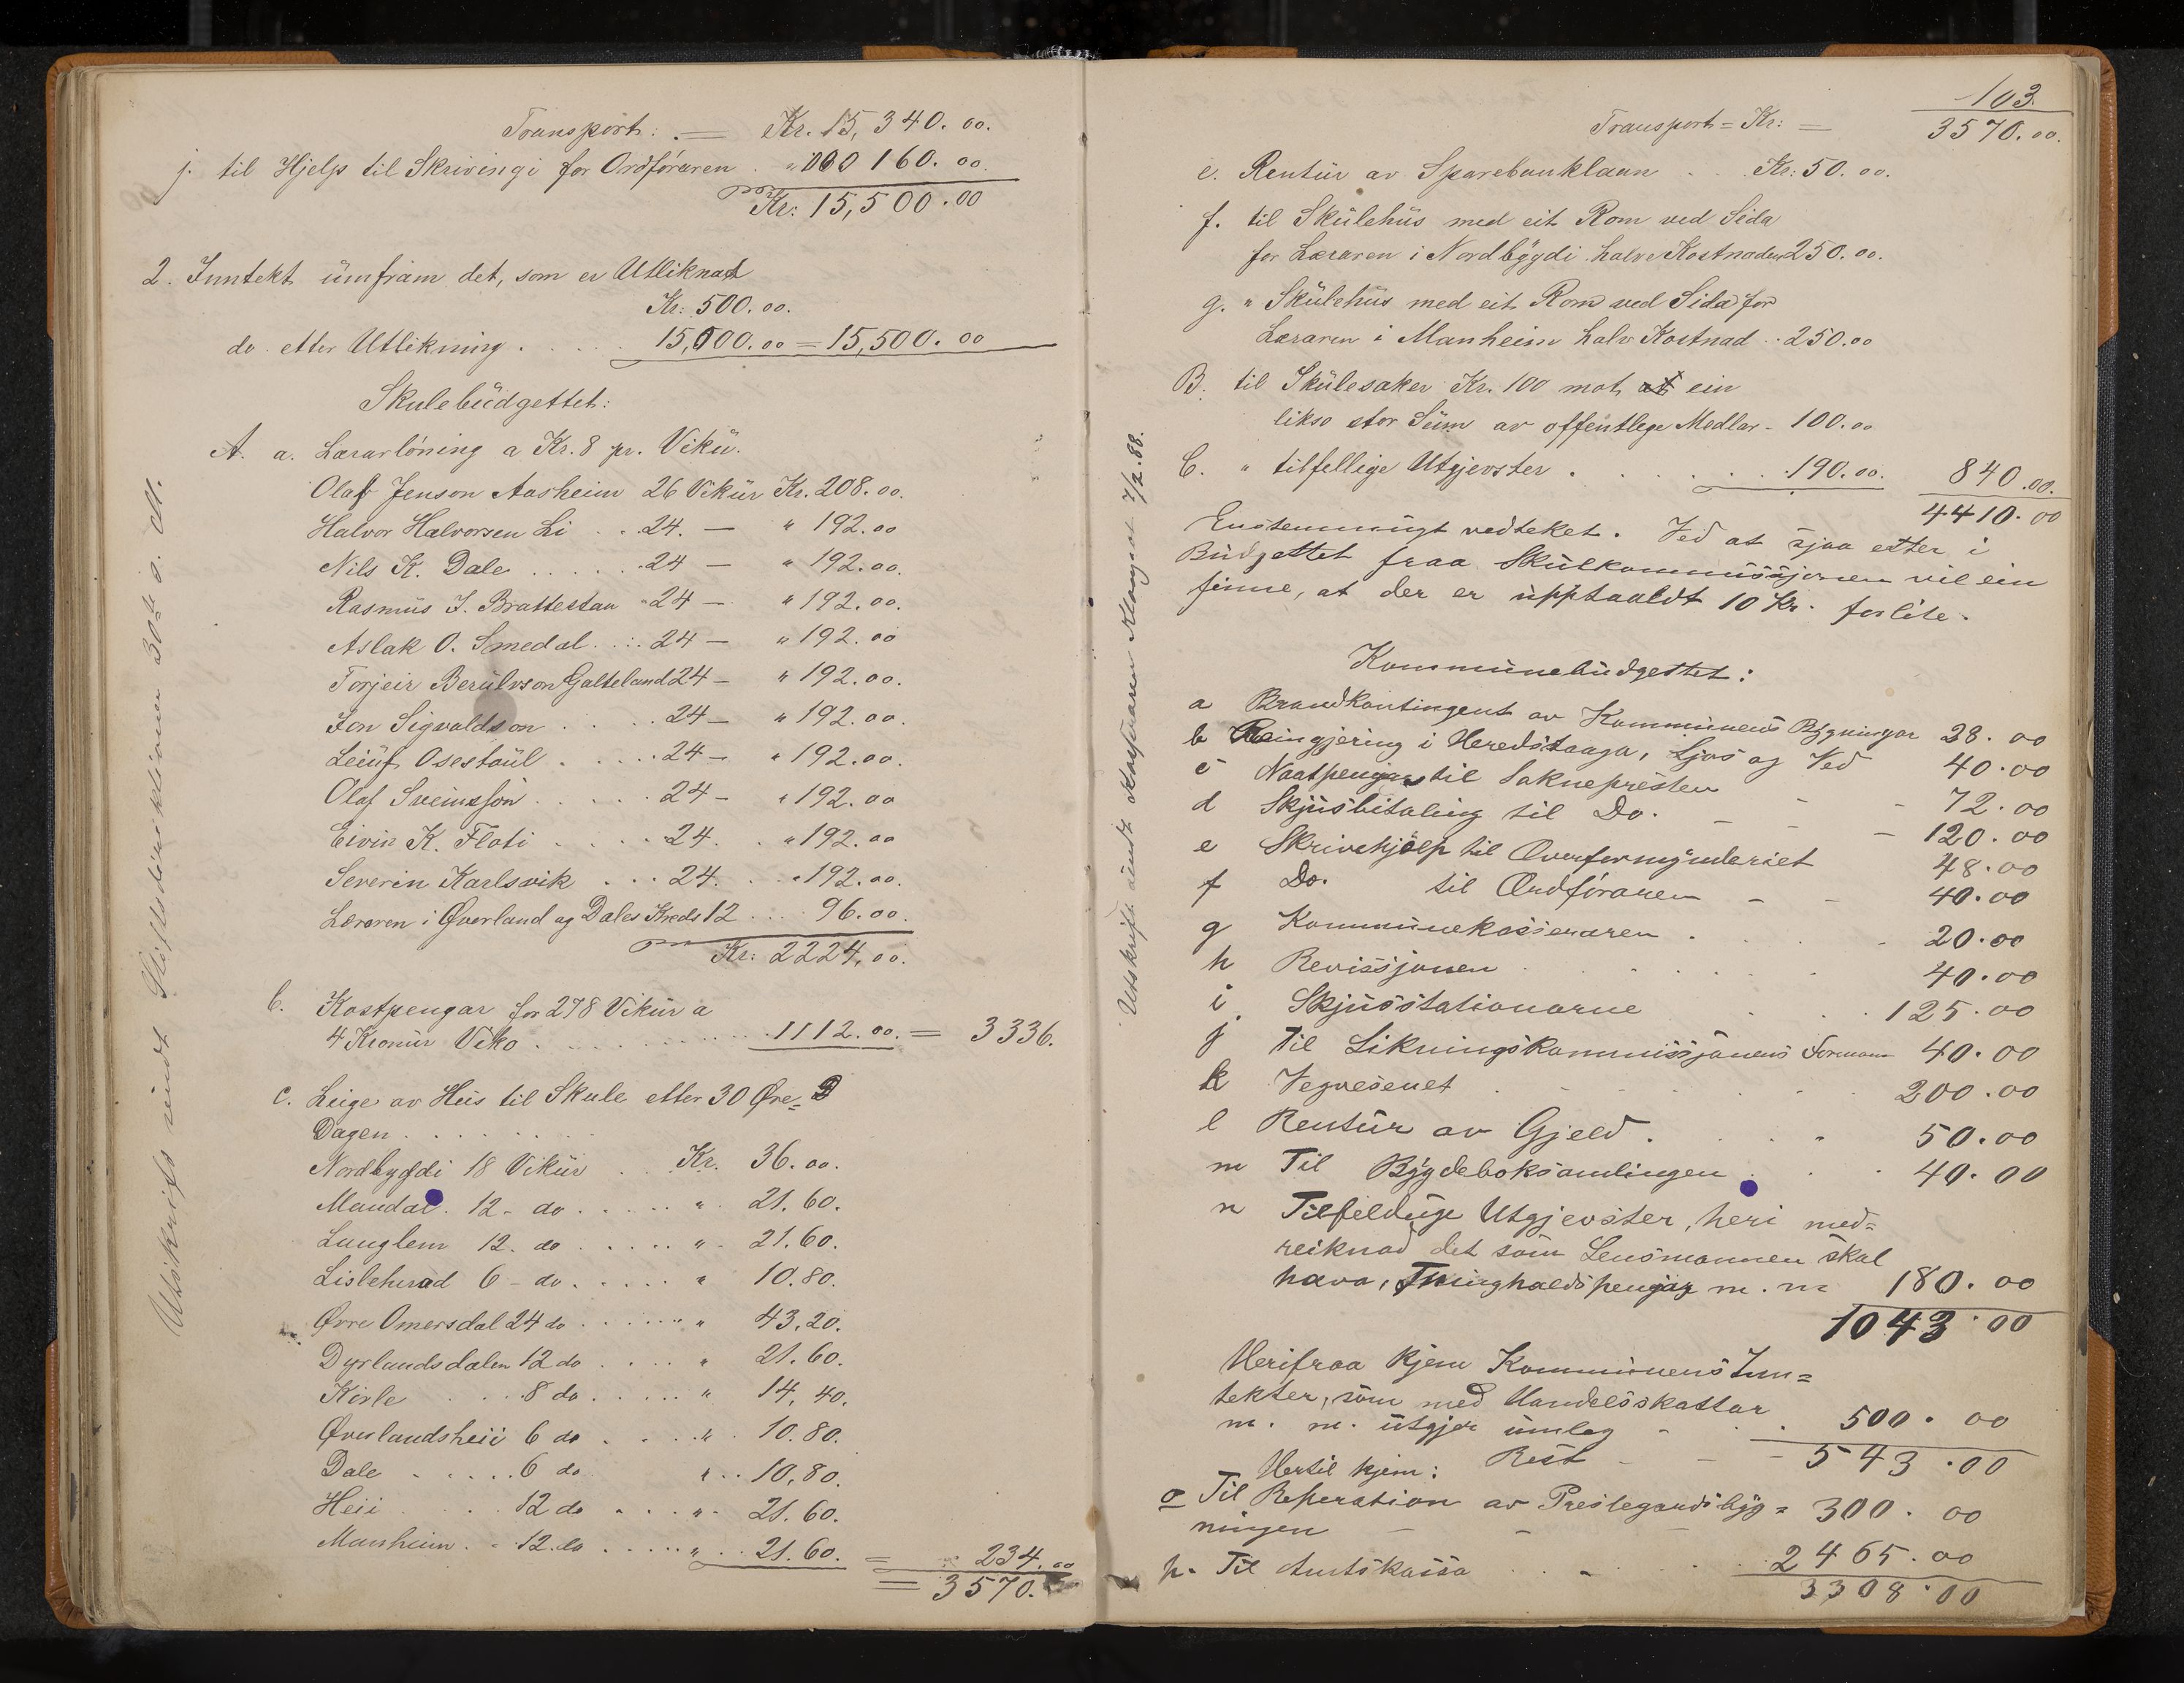 Transport: = Kr. 15,340.00.
j. til Hjelp til Skrivingi for Ordføraren . " 160.00.
Kr: 15,500.00
2. Inntekt umfram det, som er Utliknad
Kr: 500.00.
do. etter Utlikning . . . . 15,000.00 = 15,500.00
Skulebudgettet:
A. a. Lærarlöning a Kr. 8 pr. Viku.
Olaf Jenson Aasheim 26 Vikur Kr. 208.00.
Halvor Halvorsen Li . . 24. — " 192.00
Nils K. Dale . . . . . 24 — " 192.00.
Rasmus J. Brattestau " 24 — " 192.00.
Aslak O. Smedal . . . 24 — " 192.00
Torjeir Berulvson Galteland 24 — " 192.00.
Jon Sigvaldson . . . . 24 — " 192.00.
Leiuf Osestaul . . . . . 24 — " 192.00.
Olaf Sveinsson . . . . . 24 — " 192.00
Eivin K. Flati . . . . 24. . " 192.00
Severin Karlsvik . . . 24. . . " 192.00.
Læraren i Øverland og Dales Kreds 12 . . . 96.00.
Kr: 2224,00.
b. Kostpengar for 278 Vikur a
4 Kronur Viko . . . . . . . . . . 1112.00. = 3336.
c. Leige av Hus til Skule etter 30 Øre
Dagen . . . . . .
Nordbygdi 18 Vikur . . Kr. 36.00.
Mandal. 12 - do . . . . . " . 21.60.
Lunglem 12. do . . . . . " - 21.60.
Lisleherad 6 - do . . . . . " 10.80.
Øvre Omersdal 24 do . . . . . " " 43,20.
Dyrlandsdalen 12 do . . . . " 21.60.
Kirle . . . 8 do . . . . . " 14,40.
Øverlandsheii 6 do . . . . " . 10.80.
Dale - . . . . 6 do. " . . 10,80.
Heii . . . . 12 do . . . " - 21.60.
Manheim . - 12. do . . . . . " . . 21.60. = 234.00
= 3570.
Utskrift sendt Stiftsdirektionen 30te s. M.
103.
Transport = Kr: = 3570.00.
e. Rentur av Sparebanklaan . . Kr: 50.00.
f. til Skulehus med eit Rom ved Sida
for Læraren i Nordbygdi halve Kostnaden 250.00.
g. " Skulehus med eit Rom ved Sida for
Læraren i Manheim halv Kostnad . . 250.00
B. til Skulesaker Kr. 100 mot at ein
likso stor Sum av offentlege Medlar - 100.00
C. " tilfellige Utgjevster . . . . . . . 190.00. 840.00.
4410.00
Enstemmugt vedteket. Ved at sjaa etter i
Budgettet fraa Skulkommissjonen vil ein
finne, at der er upptaaldt 10 Kr. forlite.
Kommunebudgettet:
a Brandkontingent av Kommunens Bygningar 28.00
b Reingjering i Heredstaaga, Ljos og Ved 40.00
c Naatpengar til Saknepresten - - 72.00
d Skjusbitaling til Do. - - - 120.00
e Skrivehjælp til Overformynderiet 48.00
f Do. til Ordføraren - - 40.00
g Kommunekasseraren . . . - 20.00
h Revissjonen . . . . . . 40.00
i. Skjusstationarne . . . 125.00
j Til Likningskommissjonens Formann 40.00
k Vegvesenet . - - - . . . 200.00
l Rentur av Gjeld . . . " 50.00
m Til Bygdeboksamlingen . . . 40.00
n Tilfelduge Utgjevster, heri med=
reiknad det som Lensmannen skal
hava, Thinghaldspengar m.m 180.00
1043.00
Herifraa kjem Kommunens Inn=
tekter, som med Handelsskattar
m. m. utgjer umlag - . . 500.00
Rest - - - 543.00
Hertil kjem:
o Til Reperation av Prestegardsbyg= 300.00
ningen - - -
p. Til Amtskassa . . - . . 2465.00
3308.00
Utskrift sendt Kasseraren Klomset 7/2. 88.